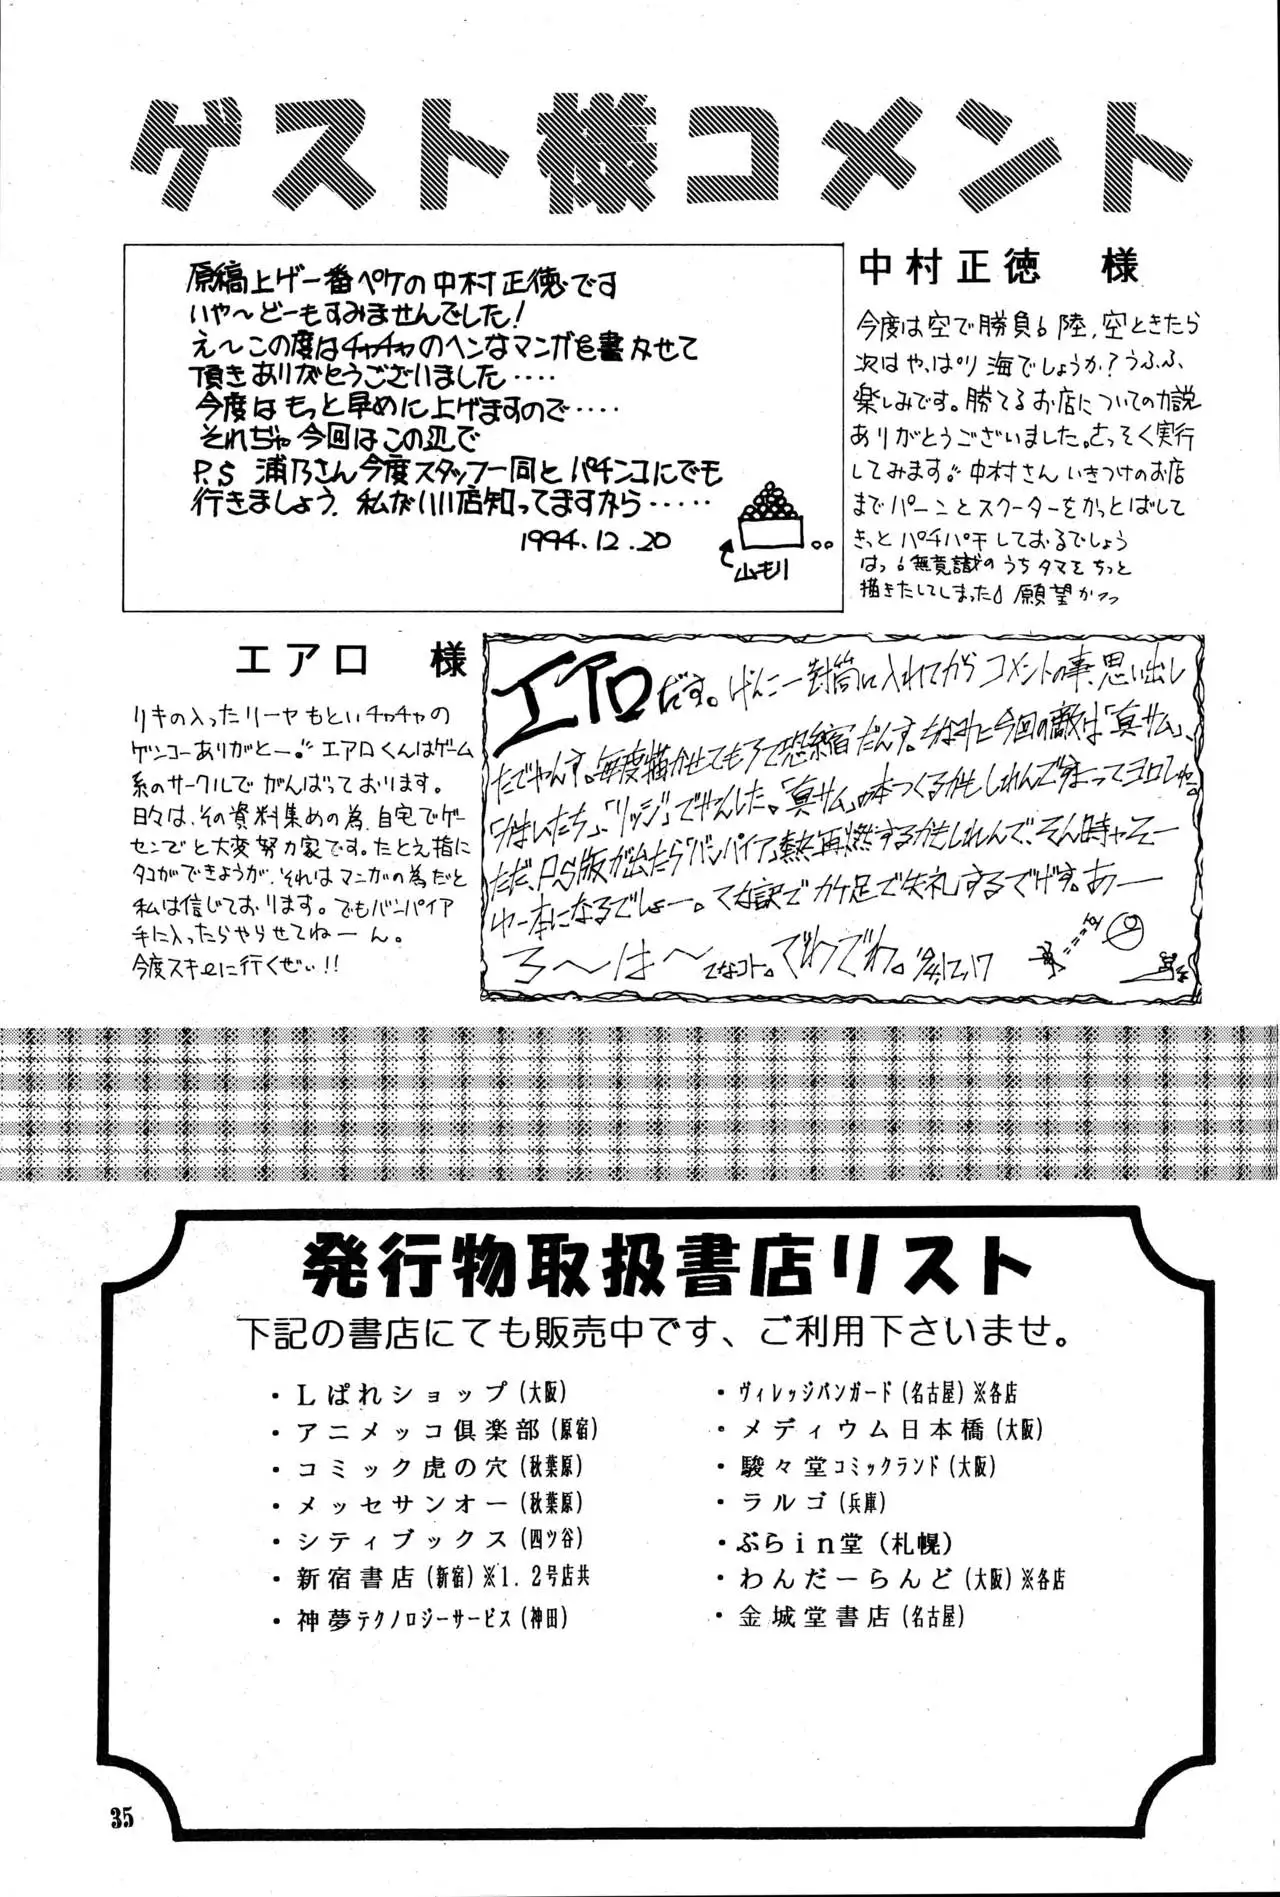 ゲスト様コメント
原稿上げ一番ペケの中村正徳です
いや〜どーもすみませんでした!
え〜この度はチャチャのヘンなマンガを書かせて
頂きありがとうございました‥‥
今度はもっと早めに上げますので‥‥
それぢゃ今回はこの辺で
P.S 浦乃さん今度スタッフ一同とパチンコにでも
行きましょう.私がいい店知ってますから‥‥‥
1994.12.20
山もり
中村正徳 様
今度は空で勝負 陸,空ときたら
次はやっぱり海でしょうか?うふふ、
楽しみです。勝てるお店についての力説
ありがとうございました。さっそく実行
してみます。中村さん いきつけのお店
までパーンとスクーターをかっとばして
きっと パチパチしておるでしょう
はっ 無意識のうちタマをちっと
描きたしてしまった 願望かっっ
エアロ 様
リキの入ったリーヤもといチャチャの
ゲンコーありがとー。エアロくんはゲーム
系のサークルで がんばっております。
日々は、その資料集めの為、自宅でゲー
センでと大変努力家です。たとえ指に
タコができようが、それはマンガの為だと
私は信じております。でもバンパイア
手に入ったらやらせてねーん。
今度スキーに行くぜい!!
エアロだす。げんこー封筒に入れてから コメントの事、思い出し
たでやんす。毎度描かせてもろて恐縮だんす。ちなみに今回の敵は「真サム」、
「リッジ」でやんした。「真サム」の本つくるかもしれんで
ただ、P.S版が出たら「バンパイア」熱再燃するかもしれんで、そん時ゃそー
ゆー本になるでしょー。てな訳でカケ足で失礼するでげす。あー
ろ〜は〜 てなコト。でわでわ。'94,12,17
発行物取扱書店リスト
下記の書店にても販売中です、ご利用下さいませ。
・Lぱれショップ(大阪)
・アニメッコ倶楽部(原宿)
・コミック虎の穴(秋葉原)
・メッセサンオー(秋葉原)
・シティブックス(四ツ谷)
・新宿書店(新宿)※1.2号店共
・神夢テクノロジーサービス(神田)
・ヴィレッジバンガード(名古屋)※各店
・メディウム日本橋(大阪)
・駿々堂コミックランド(大阪)
・ラルゴ(兵庫)
・ぶらin堂(札幌)
・わんだーらんど(大阪)※各店
・金城堂書店(名古屋)
35